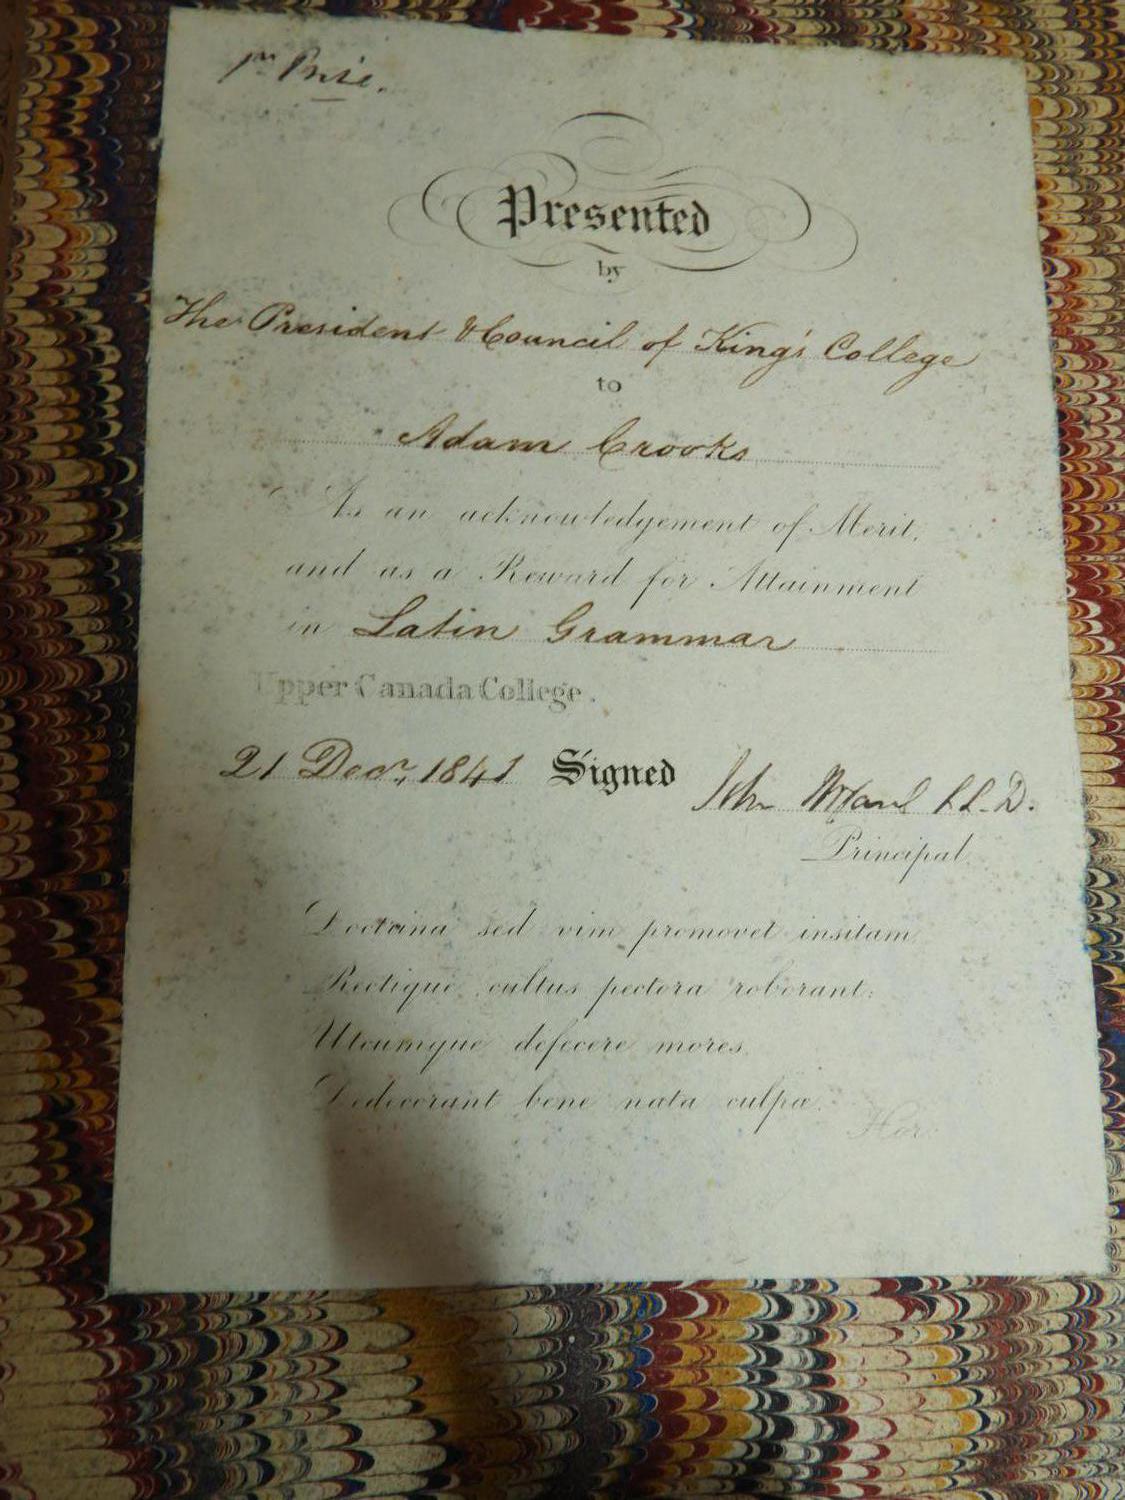 1st Prize.
Presented
by
The President & Council of King's College
to
Adam Crooks
As an acknowledgement of Merit,
and as a Reward for Attainment
in Latin Grammar
Upper Canada College.
21 Decr. 1841 Signed John McCaul LL.D.
Principal
Doctrina sed vim promovet insitam
Rectique cultus pectora roborant;
Utcumque defecere mores
Dedecorant bene nata culpæ.
Hor: